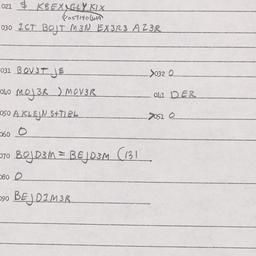 021 $ KBEX, GLY KIX
030 ICT BOJT M3N EX3R3 AZ3R
031 BOV3T JE
>032 O
040 MOJ3R ) MOV3R
041 DER
050 AKLEJN S+TIBL
>051 O
060 O
070 BOJD3M = BEJD3M (131
080 O
090 BEJDIM3R